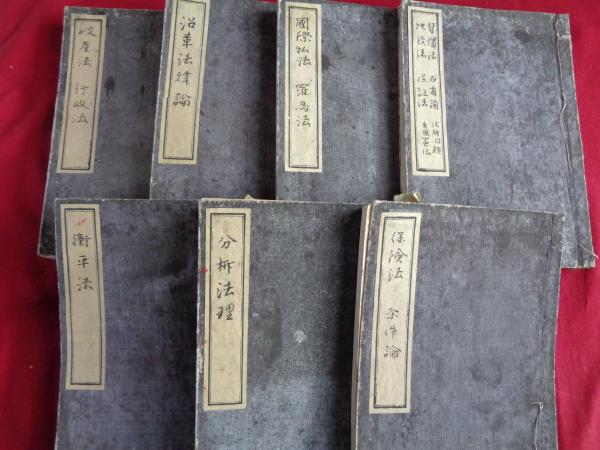 破産法 行政法
沿革法律論
國際私法 羅馬法
習慣法 占有論
地役法 保証法
衡平法
分析法理
保険法 条件論